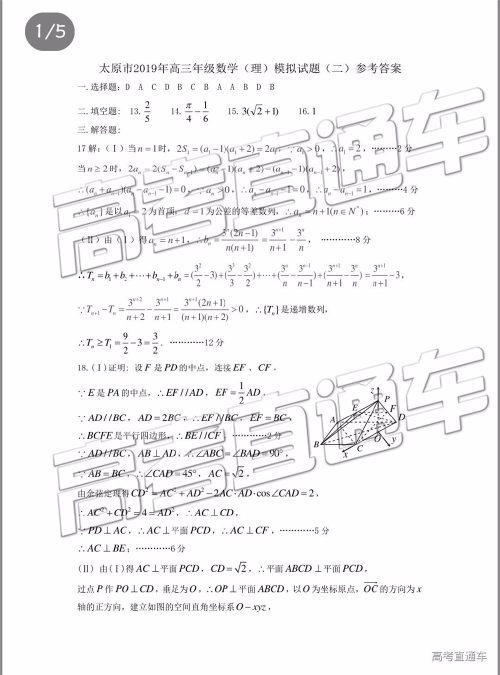 1/5
太原市2019年高三年级数学（理）模拟试题（二）参考答案
一.选择题：D A C D B C B A A B D B
二.填空题: 13. 2/5 14. π/4 − 1/6 15. 3(√2+1) 16. 1
三.解答题:
17解:(Ⅰ)当n=1时, 2S₁=(a₁−1)(a₁+2)=2a₁, ∵a₁>0, ∴a₁=2, ………2分
当n≥2时, 2aₙ=2(Sₙ−Sₙ₋₁)=(aₙ−1)(aₙ+2)−(aₙ₋₁−1)(aₙ₋₁+2),
∴(aₙ+aₙ₋₁)(aₙ−aₙ₋₁−1)=0, ∵aₙ>0, ∴aₙ−aₙ₋₁−1=0, ∴aₙ−aₙ₋₁=1, ………4分
∴{aₙ}是以a₁=2为首项, d=1为公差的等差数列, ∴aₙ=n+1(n∈N*); ………6分
(Ⅱ)由(Ⅰ)得aₙ=n+1, ∴bₙ=3ⁿ(2n−1)/n(n+1)=3ⁿ⁺¹/(n+1)−3ⁿ/n, …………8分
∴Tₙ=b₁+b₂+⋯+bₙ₋₁+bₙ=(3²/2−3)+(3³/3−3²/2)+⋯+(3ⁿ/n−3ⁿ⁻¹/(n−1))+(3ⁿ⁺¹/(n+1)−3ⁿ/n)=3ⁿ⁺¹/(n+1)−3,
∵Tₙ₊₁−Tₙ=3ⁿ⁺²/(n+2)−3ⁿ⁺¹/(n+1)=3ⁿ⁺¹(2n+1)/(n+1)(n+2)>0, ∴{Tₙ}是递增数列,
∴Tₙ≥T₁=9/2−3=3/2. …………12分
18.(Ⅰ)证明: 设F是PD的中点, 连接EF、CF,
∵E是PA的中点, ∴EF//AD, EF=1/2AD,
∵AD//BC, AD=2BC, ∴EF//BC, EF=BC,
∴BCFE是平行四边形, ∴BE//CF, …………2分
∵AD//BC, AB⊥AD, ∴∠ABC=∠BAD=90°,
∵AB=BC, ∴∠CAD=45°, AC=√2,
由余弦定理得CD²=AC²+AD²−2AC·AD·cos∠CAD=2,
∴AC²+CD²=4=AD², ∴AC⊥CD,
∵PD⊥AC, ∴AC⊥平面PCD, ∴AC⊥CF, …………5分
∴AC⊥BE; …………6分
z
P
E
F
A
D
B
O
C
x
y
(Ⅱ) 由(Ⅰ)得AC⊥平面PCD, CD=√2, ∴平面ABCD⊥平面PCD,
过点P作PO⊥CD, 垂足为O, ∴OP⊥平面ABCD, 以O为坐标原点, OC的方向为x
轴的正方向, 建立如图的空间直角坐标系O−xyz,
高考直通车
高考直通车
高考直通车
高考直通车